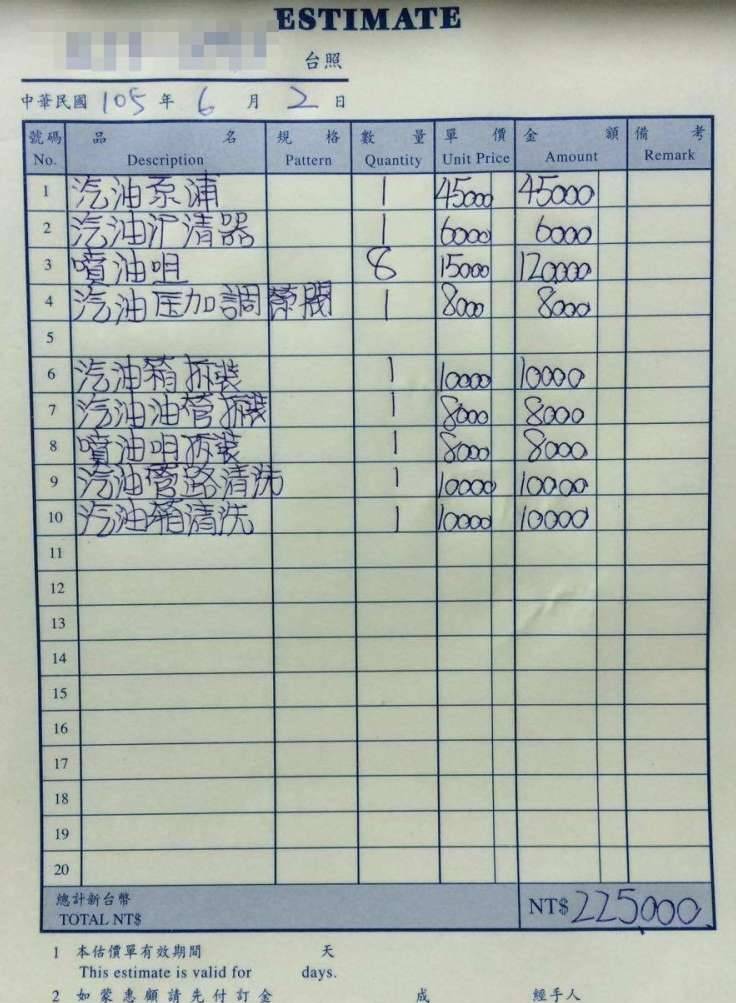 ESTIMATE
台照
中華民國 105 年 6 月 2 日
號碼 品名 規格 數量 單價 金額 備考
No. Description Pattern Quantity Unit Price Amount Remark
1 汽油泵浦 1 45000 45000
2 汽油沪清器 1 6000 6000
3 噴油咀 8 15000 120000
4 汽油压加調策閥 1 8000 8000
5
6 汽油箱拆裝 1 10000 10000
7 汽油油管拆裝 1 8000 8000
8 噴油咀拆裝 1 8000 8000
9 汽油管路清洗 1 10000 10000
10 汽油箱清洗 1 10000 10000
11
12
13
14
15
16
17
18
19
20
總計新台幣
TOTAL NT$ NT$ 225000
1 本估價單有效期間 天
This estimate is valid for days.
2 如蒙惠顧請先付訂金 成 經手人